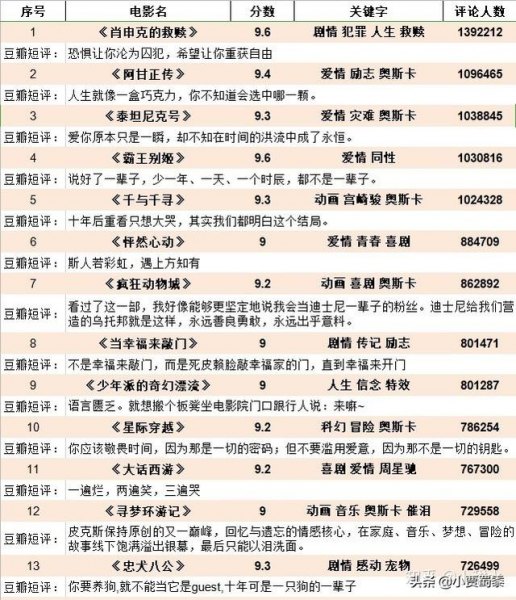 序号 电影名 分数 关键字 评论人数
1 《肖申克的救赎》 9.6 剧情 犯罪 人生 救赎 1392212
豆瓣短评： 恐惧让你沦为囚犯，希望让你重获自由
2 《阿甘正传》 9.4 爱情 励志 奥斯卡 1096465
豆瓣短评： 人生就像一盒巧克力，你不知道会选中哪一颗。
3 《泰坦尼克号》 9.3 爱情 灾难 奥斯卡 1038845
豆瓣短评： 爱你原本只是一瞬，却不知在时间的洪流中成了永恒。
4 《霸王别姬》 9.6 爱情 同性 1030816
豆瓣短评： 说好了一辈子，少一年、一天、一个时辰，都不是一辈子。
5 《千与千寻》 9.3 动画 宫崎骏 奥斯卡 1024328
豆瓣短评： 十年后重看只想大哭，其实我们都明白这个结局。
6 《怦然心动》 9 爱情 青春 喜剧 884709
豆瓣短评： 斯人若彩虹，遇上方知有
7 《疯狂动物城》 9.2 动画 喜剧 奥斯卡 862892
豆瓣短评： 看过了这一部，我好像能够更坚定地说我会当迪士尼一辈子的粉丝。迪士尼给我们营
造的乌托邦就是这样，永远善良勇敢，永远出乎意料。
8 《当幸福来敲门》 9 剧情 传记 励志 801471
豆瓣短评： 不是幸福来敲门，而是死皮赖脸敲幸福家的门，直到幸福来开门
9 《少年派的奇幻漂流》 9 人生 信念 特效 801287
豆瓣短评： 语言匮乏。就想搬个板凳坐电影院门口跟行人说：来嘛~
10 《星际穿越》 9.2 科幻 冒险 奥斯卡 786254
豆瓣短评： 你应该敬畏时间，因为那是一切的密码；但不要滥用爱意，因为那不是一切的钥匙。
11 《大话西游》 9.2 喜剧 爱情 周星驰 767300
豆瓣短评： 一遍烂，两遍笑，三遍哭
12 《寻梦环游记》 9 动画 音乐 奥斯卡 催泪 729558
豆瓣短评： 皮克斯保持原创的又一巅峰，回忆与遗忘的情感核心，在家庭、音乐、梦想、冒险的
故事线下饱满溢出银幕，最后只能以泪洗面。
13 《忠犬八公》 9.3 剧情 感动 宠物 726499
豆瓣短评： 你要养狗,就不能当它是guest,十年可是一只狗的一辈子
头条 @小贾蜀黍